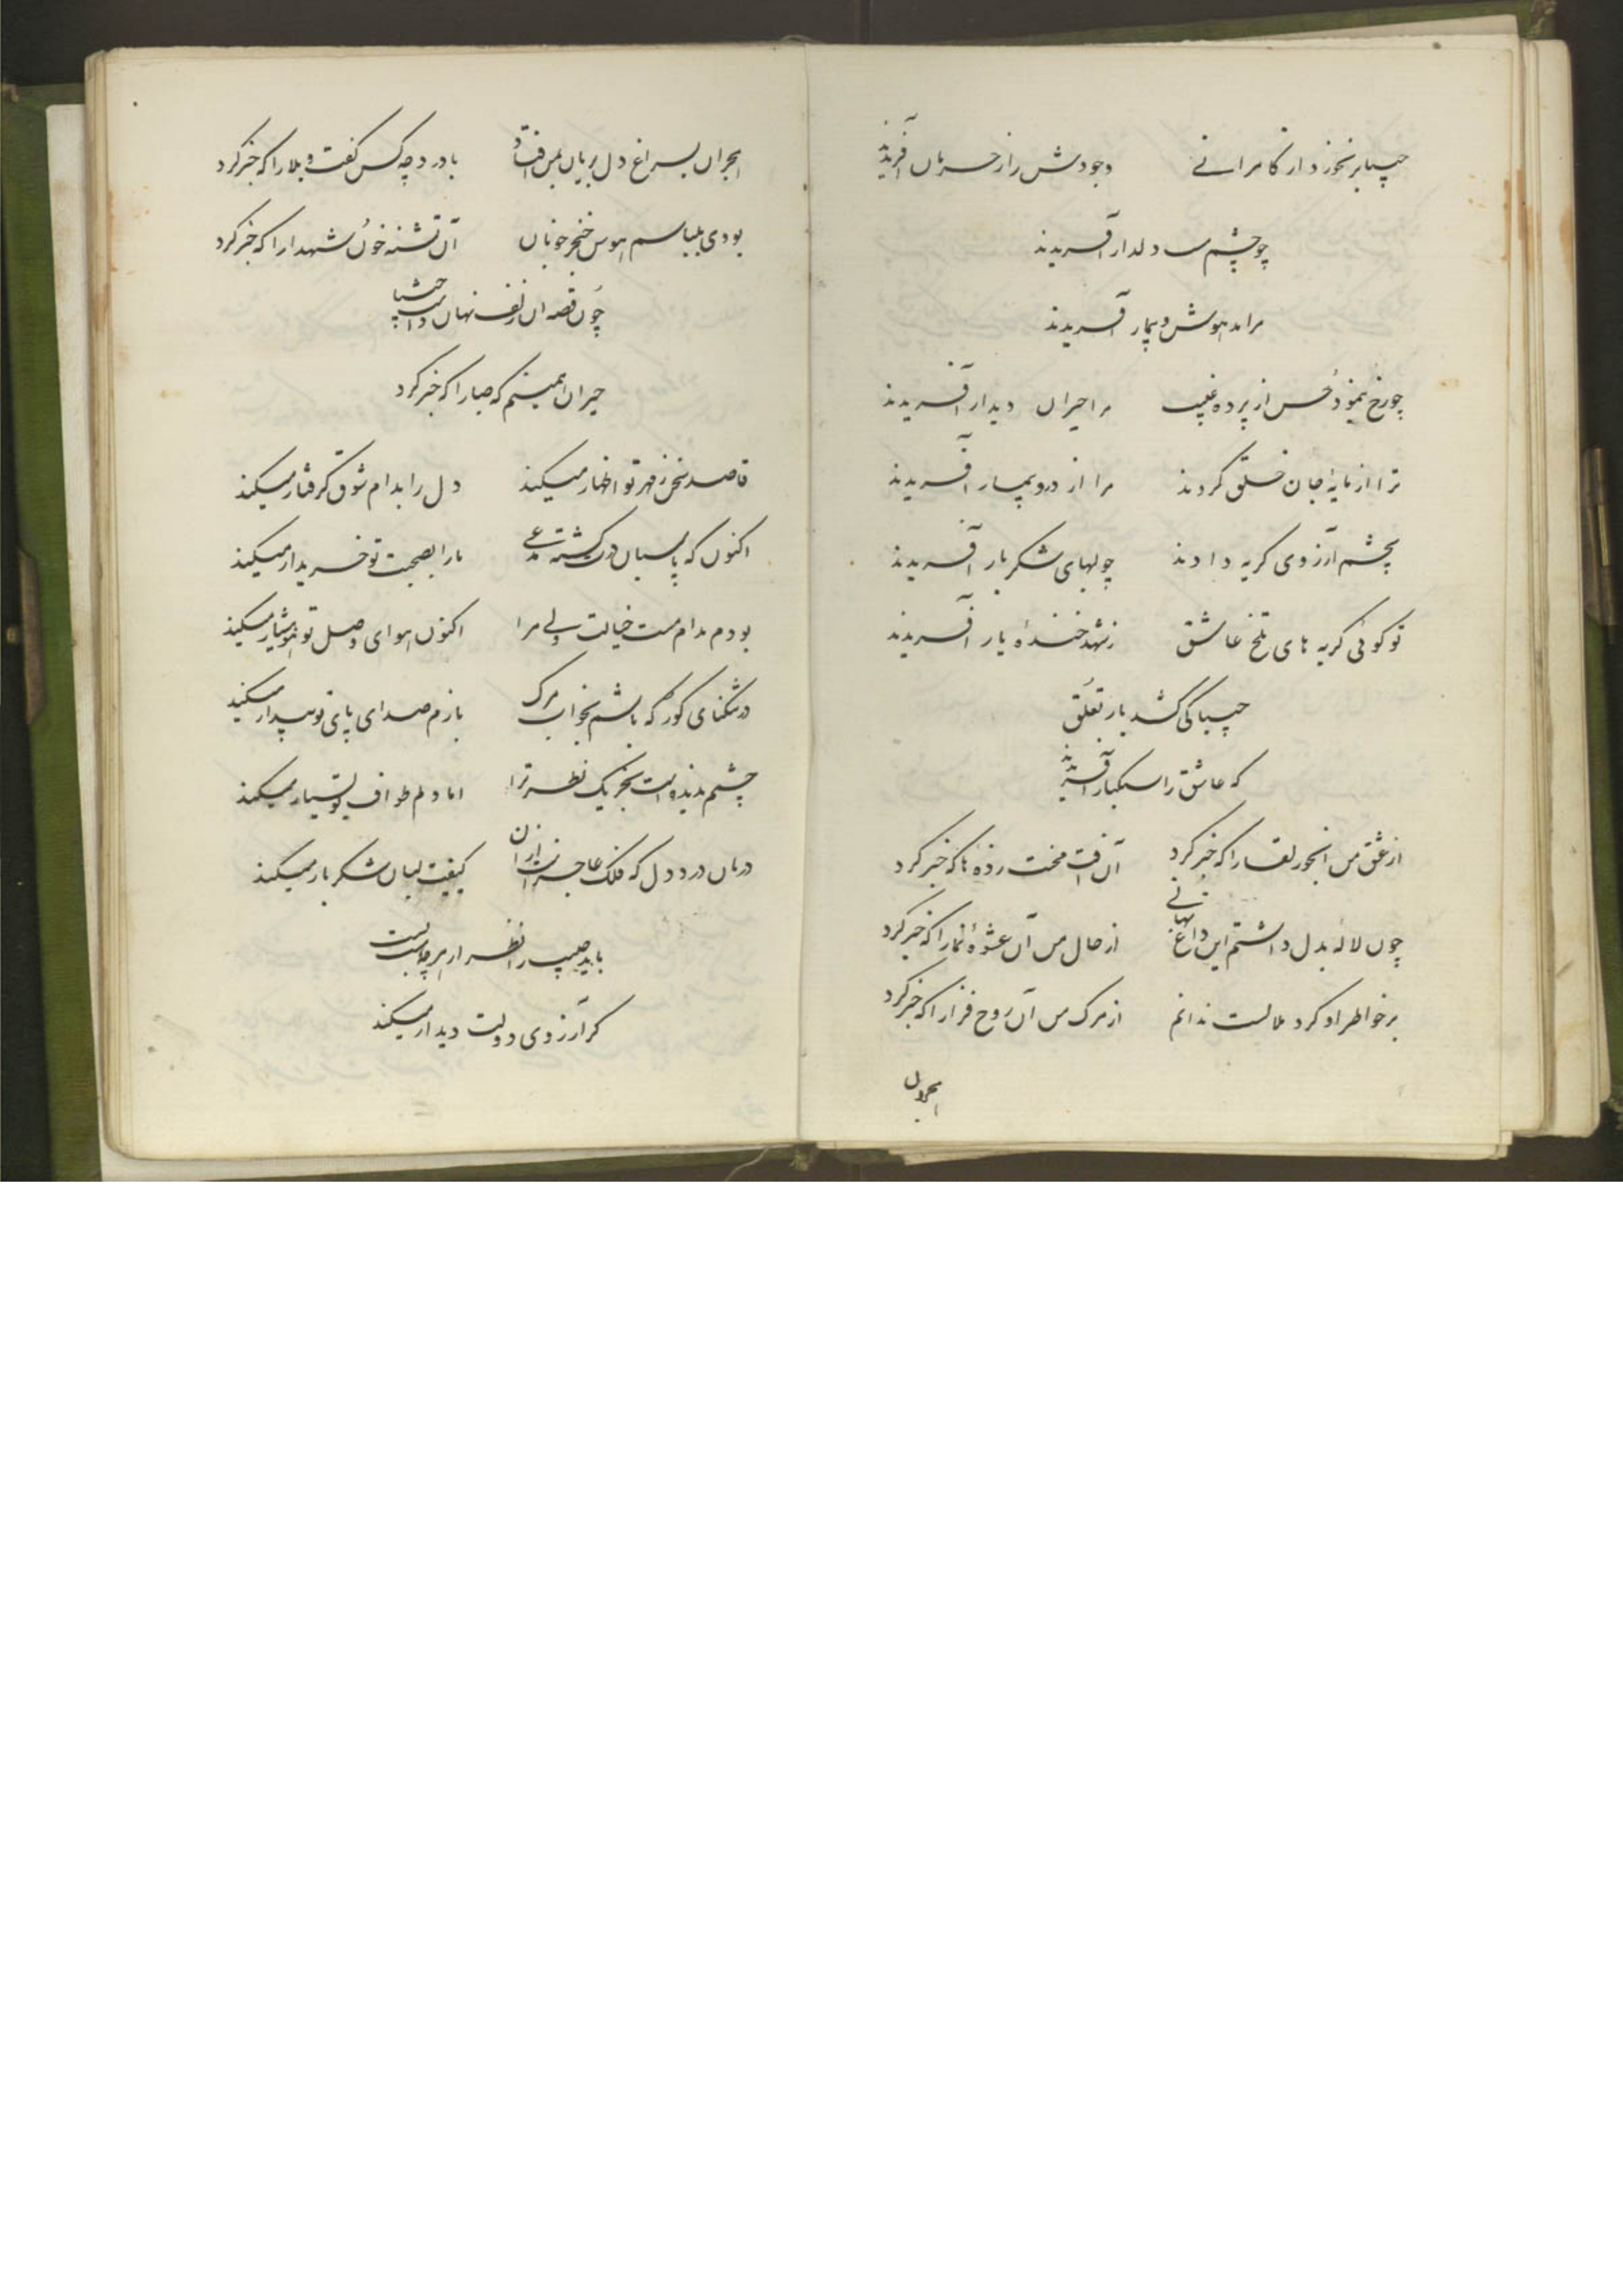 حبیبا برنخورد از کامرانی وجودش را ز حرمان آفریدند
چو چشم مست دلدار آفریدند
مرا مدهوش و بیمار آفریدند
چو رخ بنمود حسن از پرده غیب مرا حیران دیدار آفریدند
ترا از مایه جان خلق کردند مرا از درد بیمار آفریدند
بچشم آرزوی گریه دادند چو لبهای شکر بار آفریدند
تو گوئی گریه های تلخ عاشق ز شهد خندهٔ یار آفریدند
حبیبا کی کشد بار تعلق
که عاشق را سبکبار آفریدند
از عشق من آنحور لقا را که خبر کرد آن آفت محنت زده ها که خبر کرد
چون لاله بدل داشتم این داغ نهانی از حال من آن عشوه نما را که خبر کرد
بر خواطر او گرد ملالست ندانم از مرگ من آن روح فزا را که خبر کرد
هجران
هجران بسراغ دل بریان بمن افتاد با درد چه کس گفت و بلا را که خبر کرد
بودی هوس خنجر خوبان آن تشنه خون شهدا را که خبر کرد
چون قصه آن زلف نهان داشت حبیبا
حیران همینم که صبا را که خبر کرد
قاصد سخن ز مهر تو اظهار میکند دل را بدام شوق گرفتار میکند
اکنون که پاسبان درت گشته مدعی ما را بصحبت تو خریدار میکند
بودم مدام مست خیالت ولی مرا اکنون هوای وصل تو هوشیار میکند
در تنگنای گور که باشم بخواب مرگ بازم صدای پای تو بیدار میکند
چشمم ندیده است بجز یک نظر ترا اما دلم طواف تو بسیار میکند
درمان درد دل که فلک عاجز است از آن کیفیت لبان شکر بار میکند
باید حبیب را نظر از هر چه هست بست
گر آرزوی دولت دیدار میکند